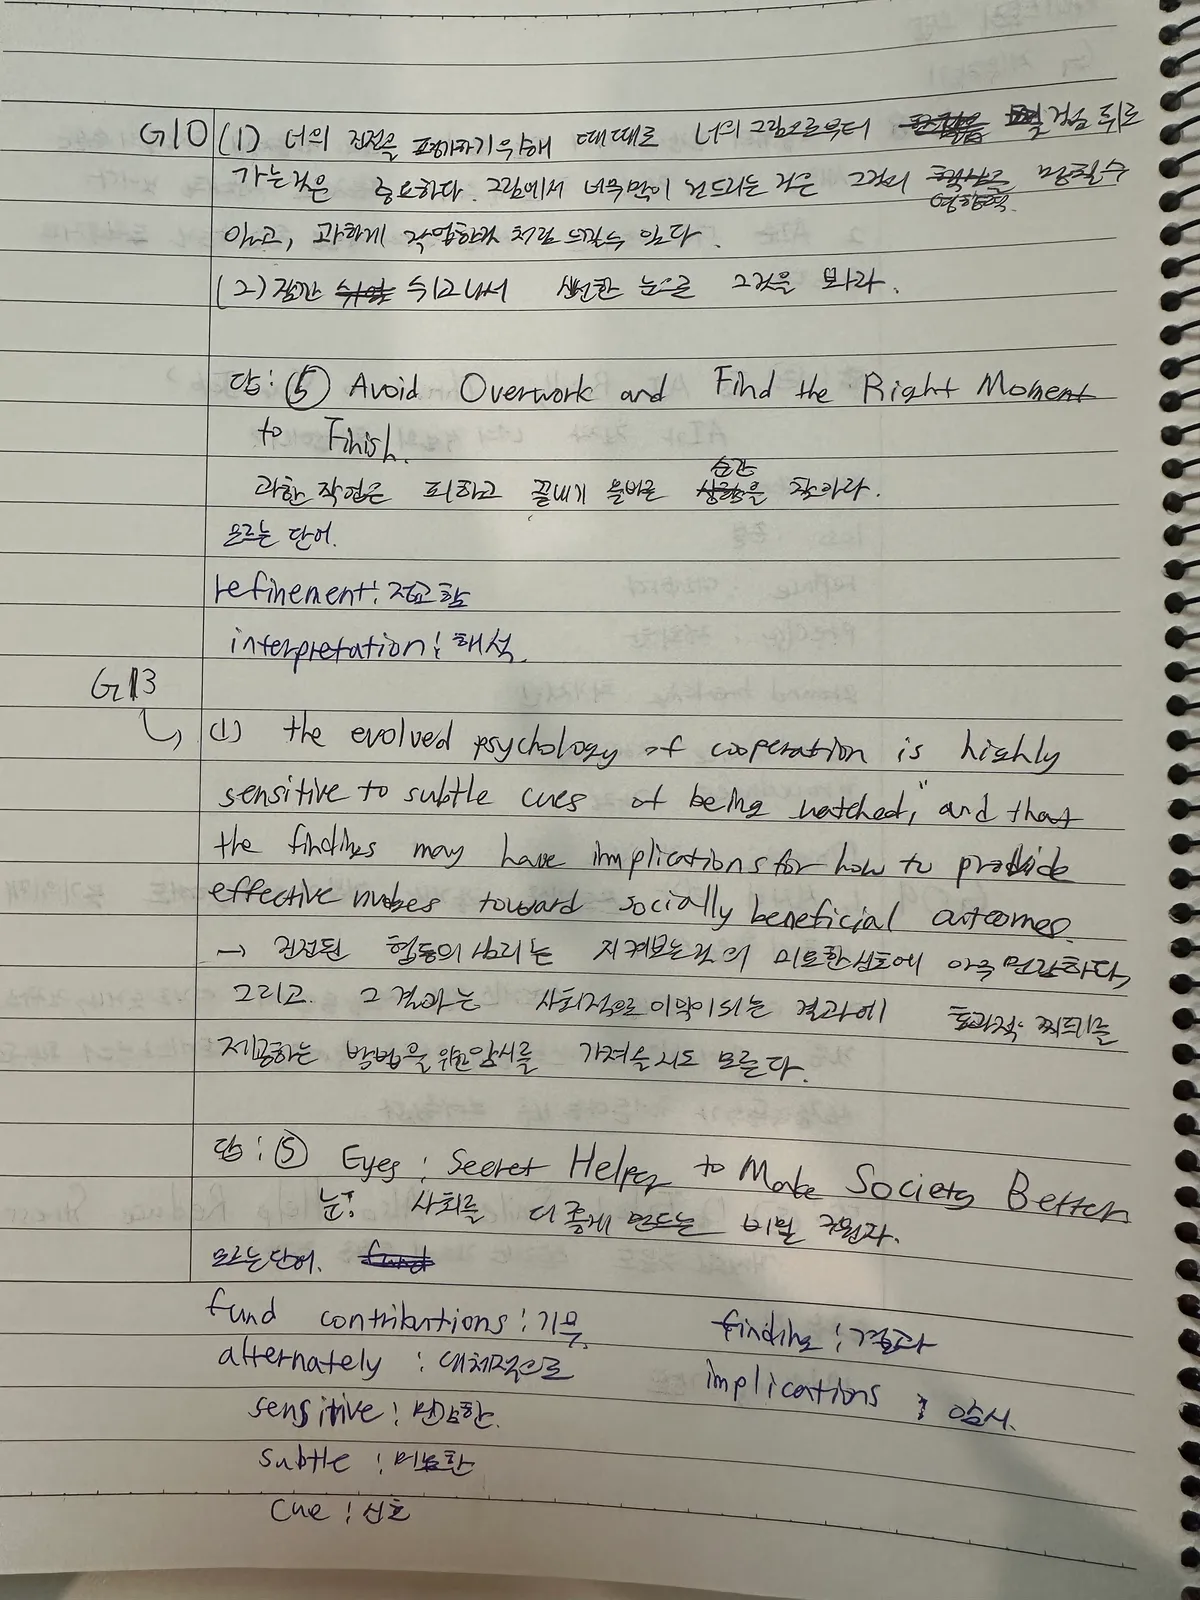 G10 (1) 너의 진전을 평가하기 위해 때때로 너의 그림으로부터 몇 걸음 뒤로
가는것은 중요하다. 그림에서 너무많이 건드리는 것은 그것의 망칠수
영향력
있고, 과하게 작업한것 처럼 느낄수 있다.
(2) 잠깐 쉬고나서 신선한 눈으로 그것을 봐라.
답: ⑤ Avoid Overwork and Find the Right Moment
to Finish.
순간
과한 작업은 피하고 끝내기 올바른 상황을 찾아라.
모르는 단어.
refinement: 정교함
interpretation: 해석.
G13
(1) the evolved psychology of cooperation is highly
sensitive to subtle cues of being watched," and that
the findings may have implications for how to provide
effective nudges toward socially beneficial outcomes.
→ 진전된 협동의 심리는 지켜보는것의 미묘한신호에 아주 민감하다,
그리고. 그 결과는 사회적으로 이익이되는 결과에 효과적인 찌르기를
제공하는 방법을 위한암시를 가져올지도 모른다.
답: ⑤ Eyes: Secret Helper to Make Society Better
눈: 사회를 더 좋게 만드는 비밀 지원자.
모르는단어. fund
fund contributions: 기부. finding: 결과
alternately : 대체적으로 implications : 암시.
sensitive: 민감한.
subtle : 미묘한
cue : 신호